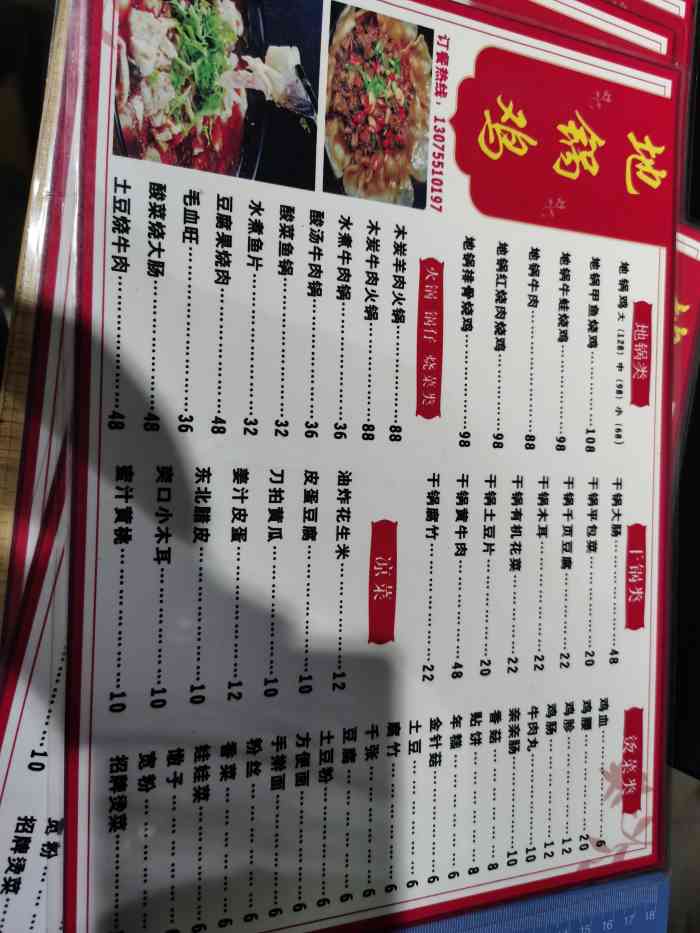 地锅鸡
订餐热线：13075510197
地锅类
地锅鸡 大（128）中（98）小（68）
地锅甲鱼烧鸡 108
地锅牛蛙烧鸡 98
地锅牛肉 88
地锅红烧肉烧鸡 98
地锅排骨烧鸡 98
火锅 锅仔 烧菜类
木炭羊肉火锅 88
木炭牛肉火锅 88
水煮牛肉锅 36
酸汤牛肉锅 36
酸菜鱼锅 32
水煮鱼片 32
豆腐果烧肉 48
毛血旺 36
酸菜烧大肠 48
土豆烧牛肉 48
干锅类
干锅大肠 48
干锅平包菜 20
干锅千页豆腐 22
干锅木耳 22
干锅有机花菜 22
干锅土豆片 20
干锅黄牛肉 48
干锅腐竹 22
凉菜
油炸花生米 12
皮蛋豆腐 10
刀拍黄瓜 10
姜汁皮蛋 12
东北腊皮 10
爽口小木耳 10
蜜汁黄桃 10
烫菜类
鸡血 6
鸡腰 20
鸡胗 12
鸡肠 12
牛肉丸 10
亲亲肠 10
香菇 8
贴饼 8
年糕 6
金针菇 6
土豆 6
腐竹 6
千张 6
豆腐 6
土豆粉 6
方便面 6
手擀面 6
粉丝 6
香菜 6
娃娃菜 6
馓子 6
宽粉 6
招牌烫菜 6
10
宽粉
招牌烫菜
15
16
17
18